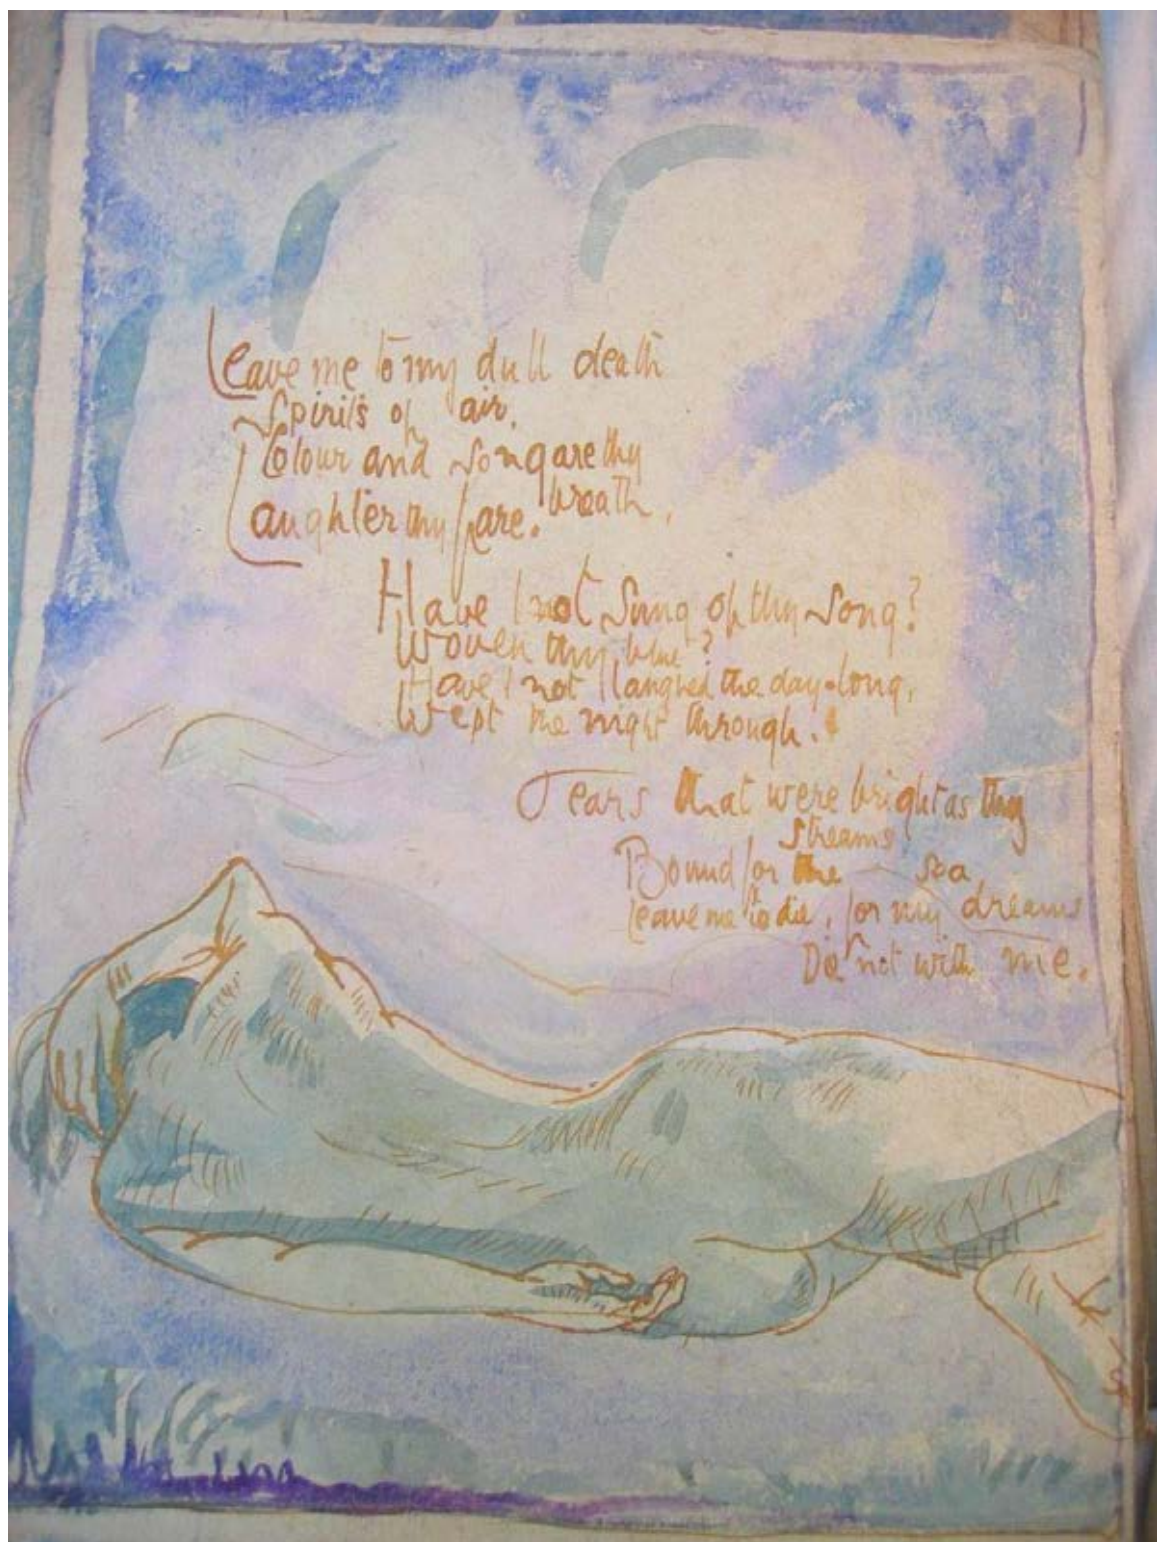 Leave me to my dull death
Spirits of air,
Colour and song are thy
breath,
Laughter thy fare.
Have I not sung of thy song?
Woven thy blue?
Have I not laughed the day-long,
Wept the night through.
Tears that were bright as thy
streams
Bound for the sea
Leave me to die, for my dreams
Die not with me.